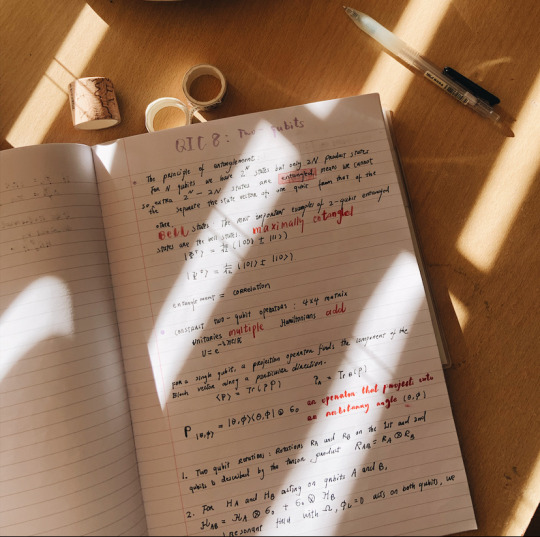 QIC 8: Two qubits
The principle of entanglement
For N qubits we have 2^N states but only 2N product states
so extra 2^N - 2N states are entangled means we cannot
the separate the state vector of one qubit from that of the
other.
Bell states The most important examples of 2-qubit entangled
states are the Bell states. maximally entangled
|Φ±⟩ = 1/√2 (|00⟩ ± |11⟩)
|Ψ±⟩ = 1/√2 (|01⟩ ± |10⟩)
entanglement = correlation
Construct two-qubit operators: 4x4 matrix
Unitaries multiple Hamiltonians add
For a single qubit, a projection operator finds the component of the
Bloch vector along a particular direction.
⟨P⟩ = Tr(ρP)
P(θ,φ) = |θ,φ⟩⟨θ,φ| ⊗ σ0
an operator that projects onto
an arbitrary angle (θ,φ)
1. Two qubit rotations: Rotations RA and RB on the 1st and 2nd
qubits is described by the tensor product RAB = RA ⊗ RB
2. For HA and HB acting on qubits A and B,
HAB = HA ⊗ σ0 + σ0 ⊗ HB
resonant field with Ω, φL=0 acts on both qubits, we